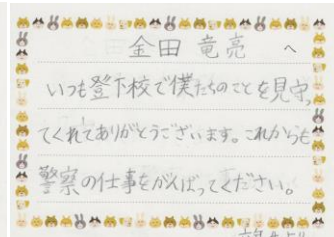 金田 竜亮 へ
いつも登下校で僕たちのことを見守っ
てくれてありがとうございます。これからも
警察の仕事をがんばってください。